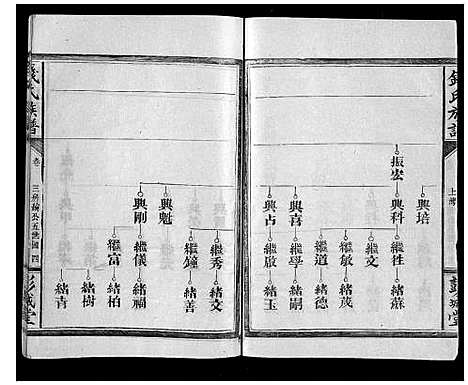 錢氏族譜
上
振宏
興培
興科
興喜
興占
繼牲
繼文
繼敏
繼道
繼學
繼啟
緒蘇
緒茂
緒德
緒嗣
緒玉
彭城堂
錢氏族譜
卷
三房榆公五世圖 四
興魁
興剛
繼秀
繼鐘
繼儀
繼富
緒文
緒善
緒福
緒柏
緒樹
緒青
彭城堂